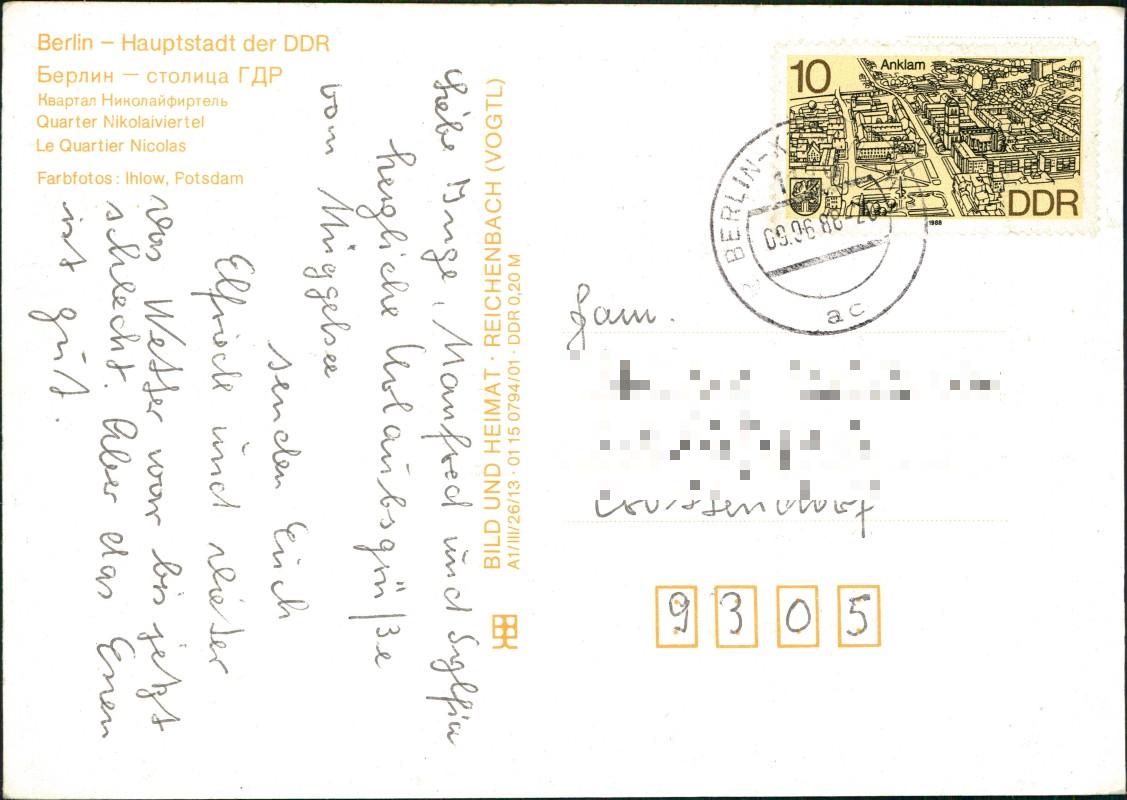 Berlin – Hauptstadt der DDR
Берлин – столица ГДР
Квартал Николайфиртель
Quarter Nikolaiviertel
Le Quartier Nicolas
Farbfotos: Ihlow, Potsdam
Liebe Inge, Manfred und Sylfia
herzliche Urlaubsgrüße
vom Müggelsee
senden Euch
Elfriede und Dieter
Das Wetter war bis jetzt
schlecht. Aber das Essen
ist gut.
BILD UND HEIMAT · REICHENBACH (VOGTL)
A1/III/26/13 · 01 15 0794/01 · DDR 0,20 M
10
Anklam
DDR
1988
BERLIN-K
09.06.88
ac
Fam.
9305